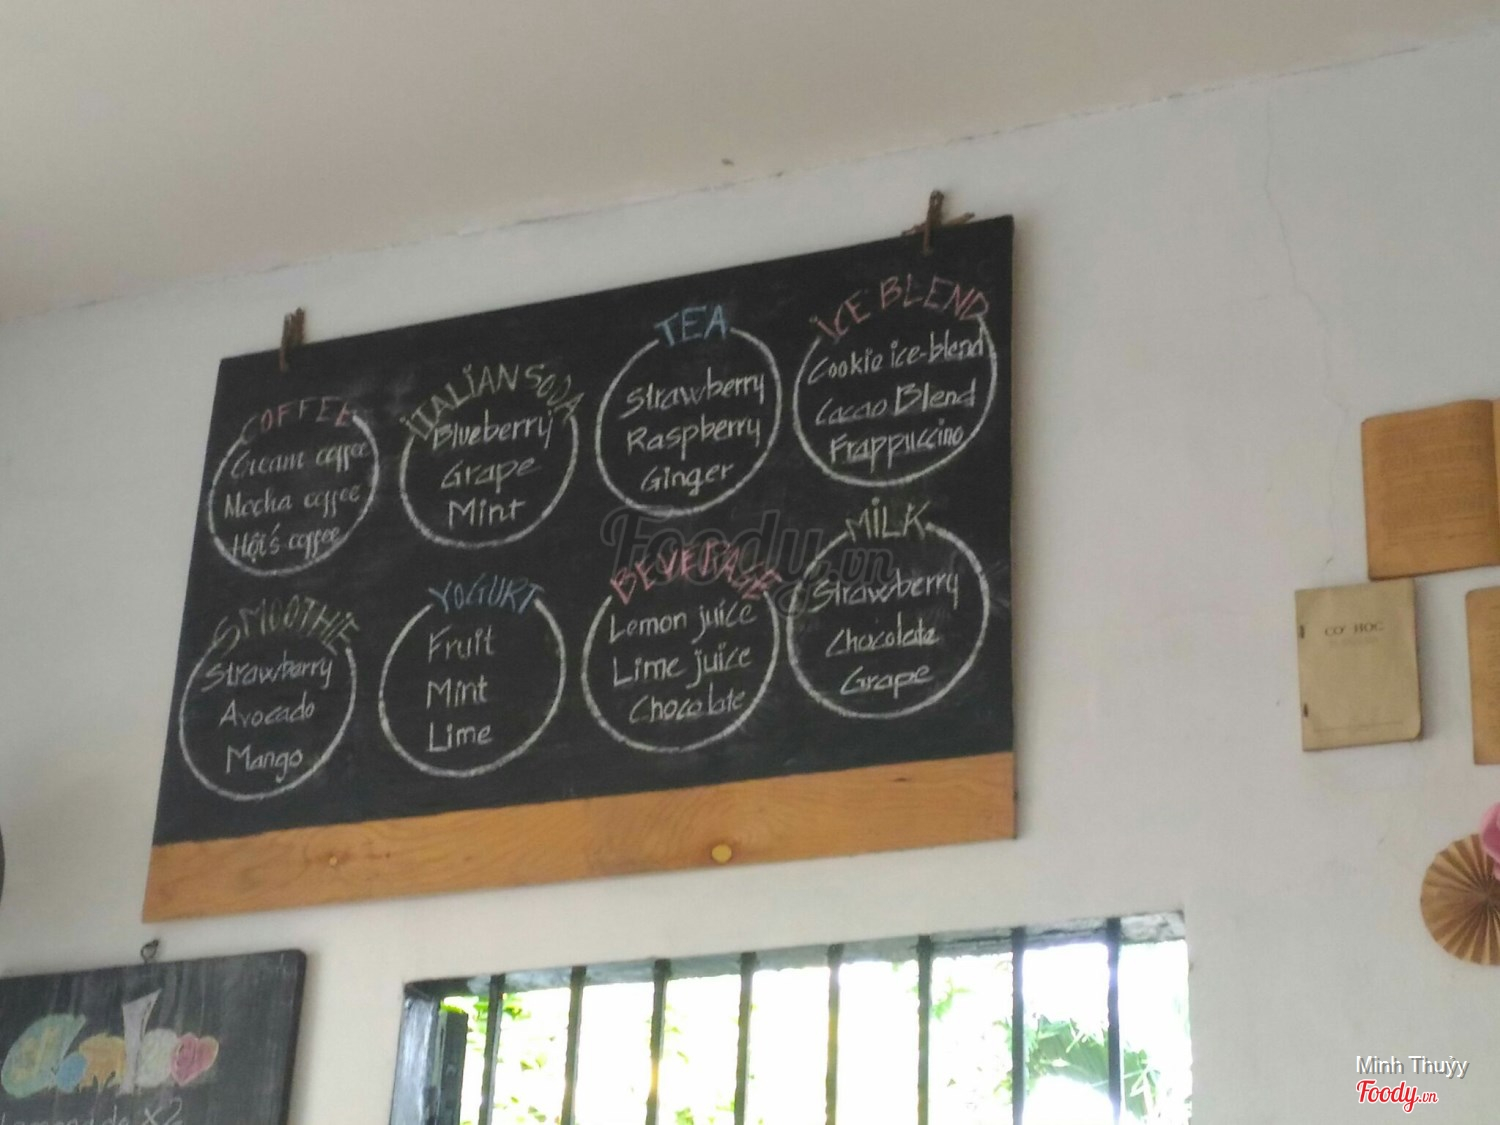 COFFEE
Cream coffee
Mocha coffee
Hội's coffee
ITALIAN SODA
Blueberry
Grape
Mint
TEA
Strawberry
Raspberry
Ginger
ICE BLEND
Cookie ice-blend
Cacao Blend
Frappuccino
SMOOTHIE
Strawberry
Avocado
Mango
YOGURT
Fruit
Mint
Lime
BEVERAGE
Lemon juice
Lime juice
Chocolate
MILK
Strawberry
Chocolate
Grape
Foody.vn
CƠ HỌC
Combo
Minh Thuỷy
Foody.vn